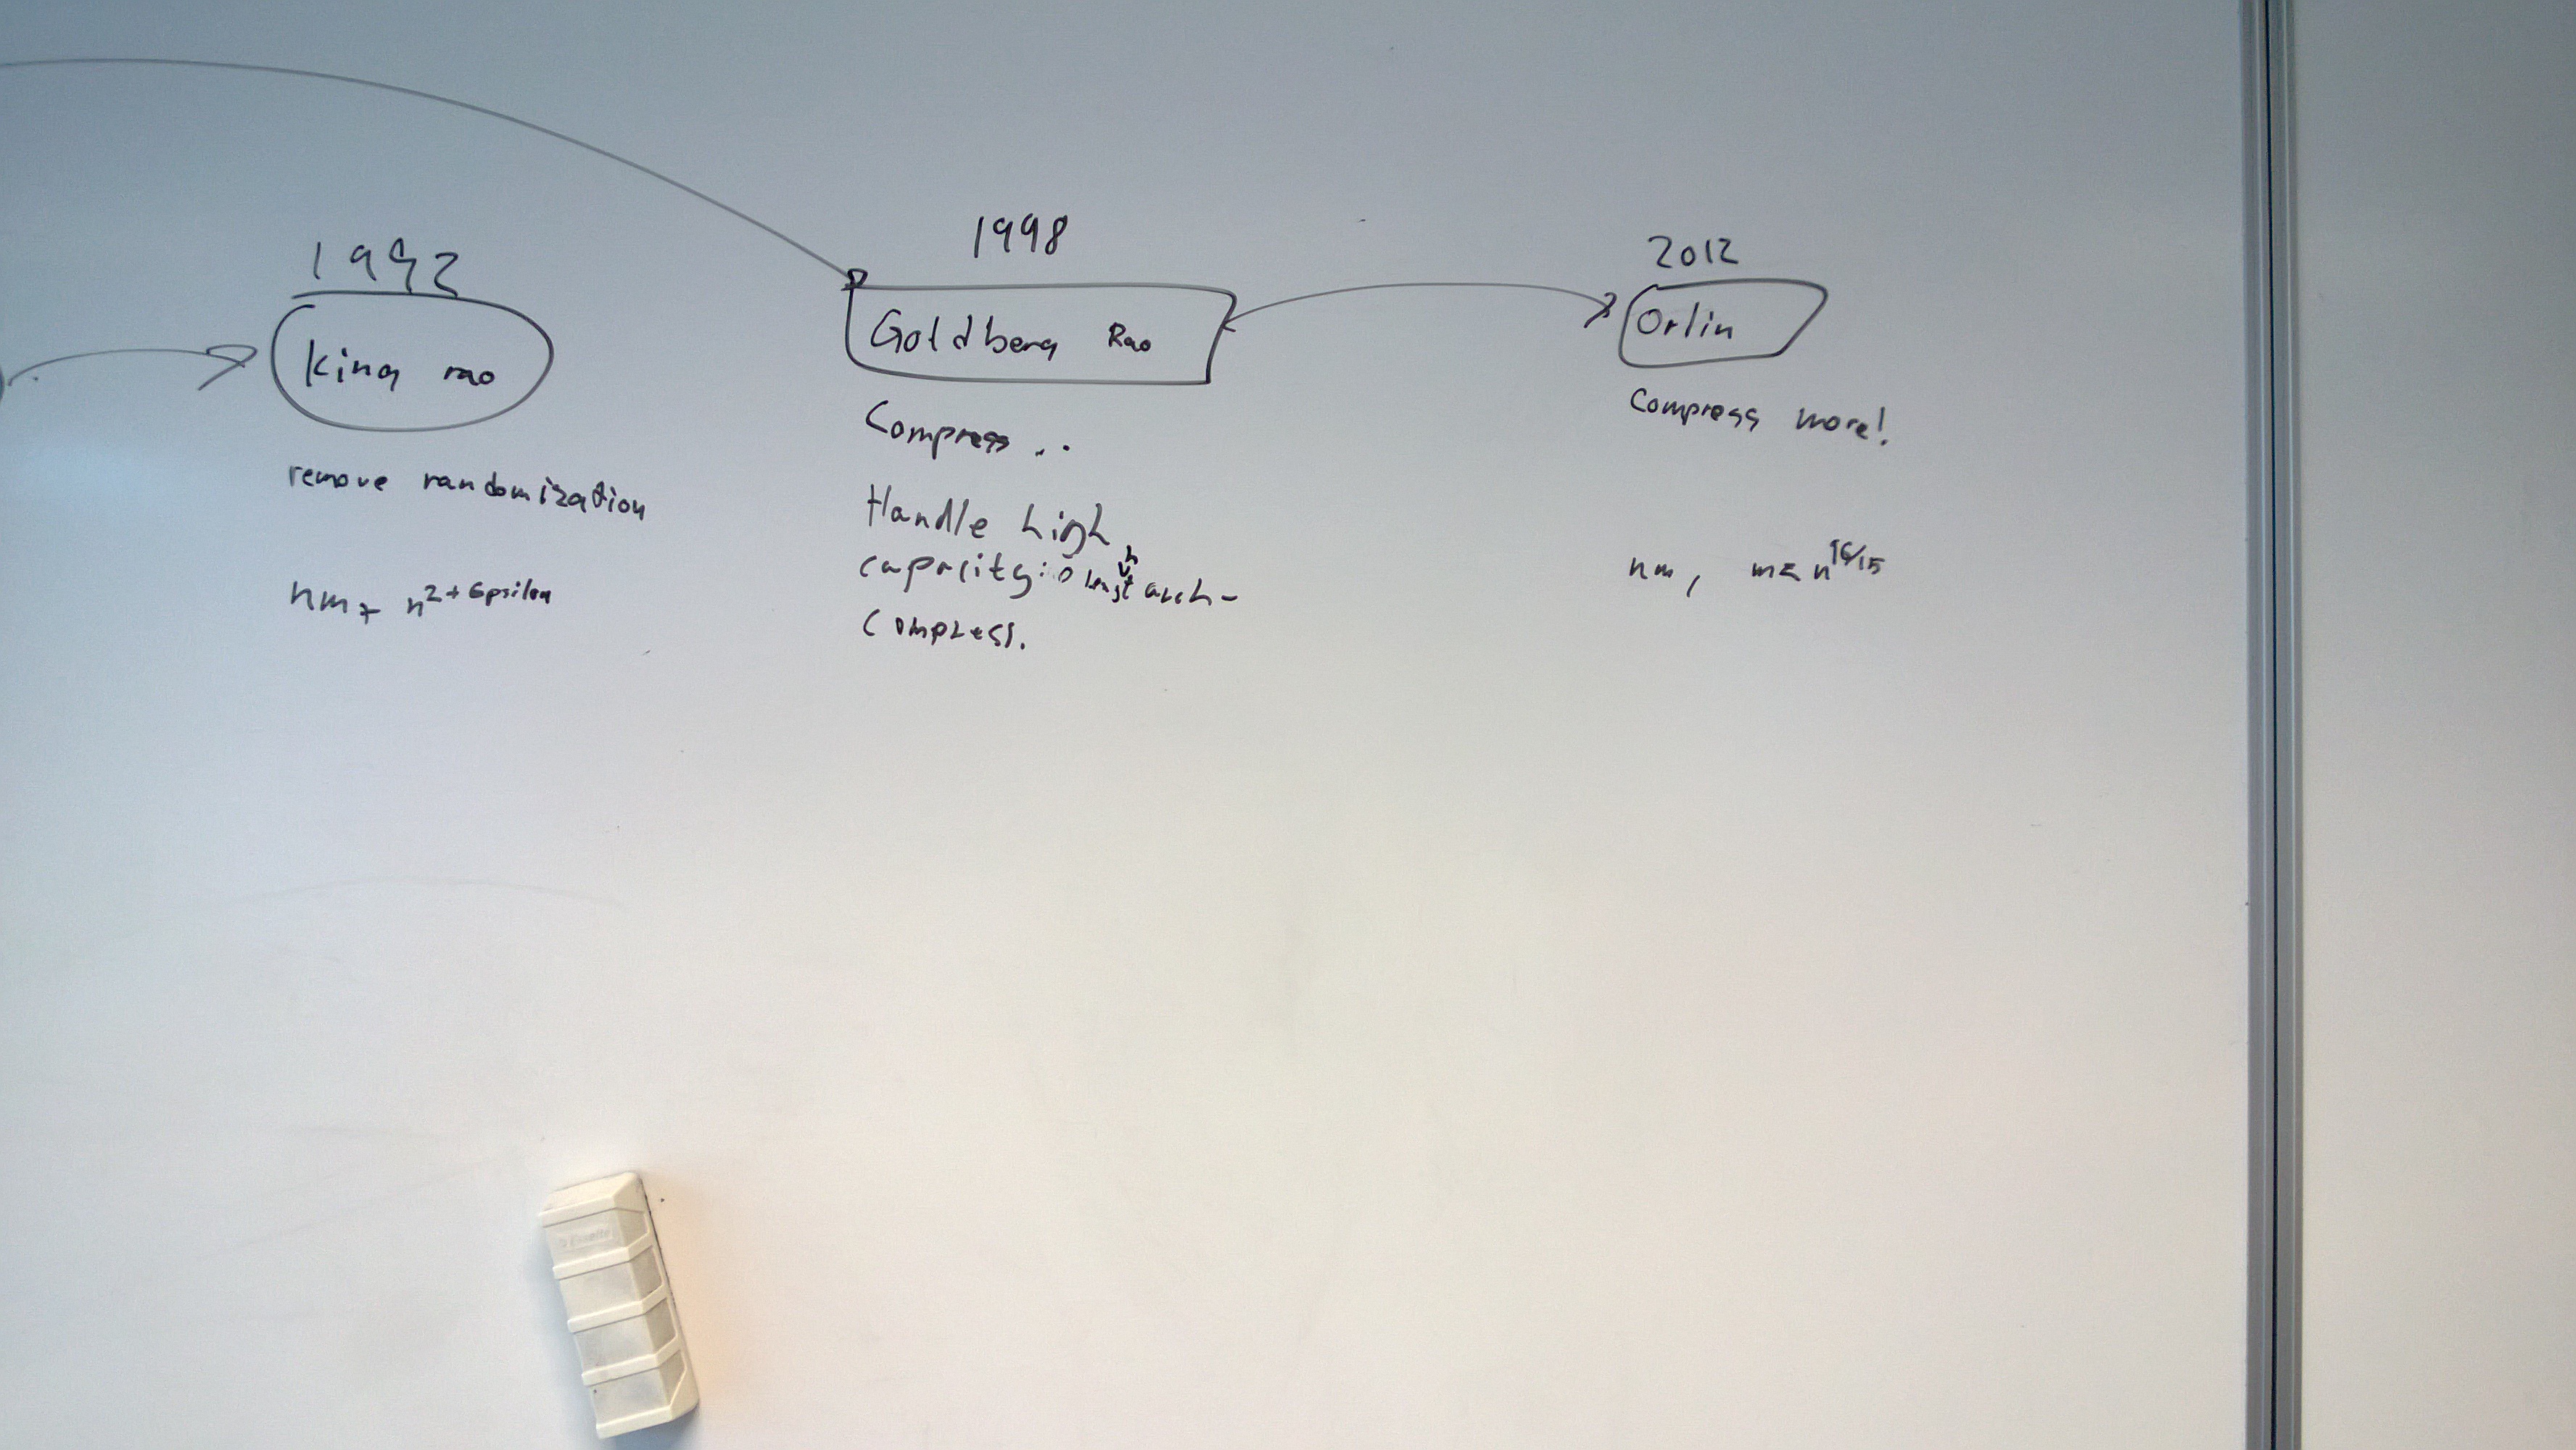 1992
king rao
remove randomization
nm + n^2+Epsilon
1998
Goldberg Rao
Compress ..
Handle high
capacity: 0 length arch -
compress.
2012
Orlin
Compress more!
nm, m≤ n^16/15